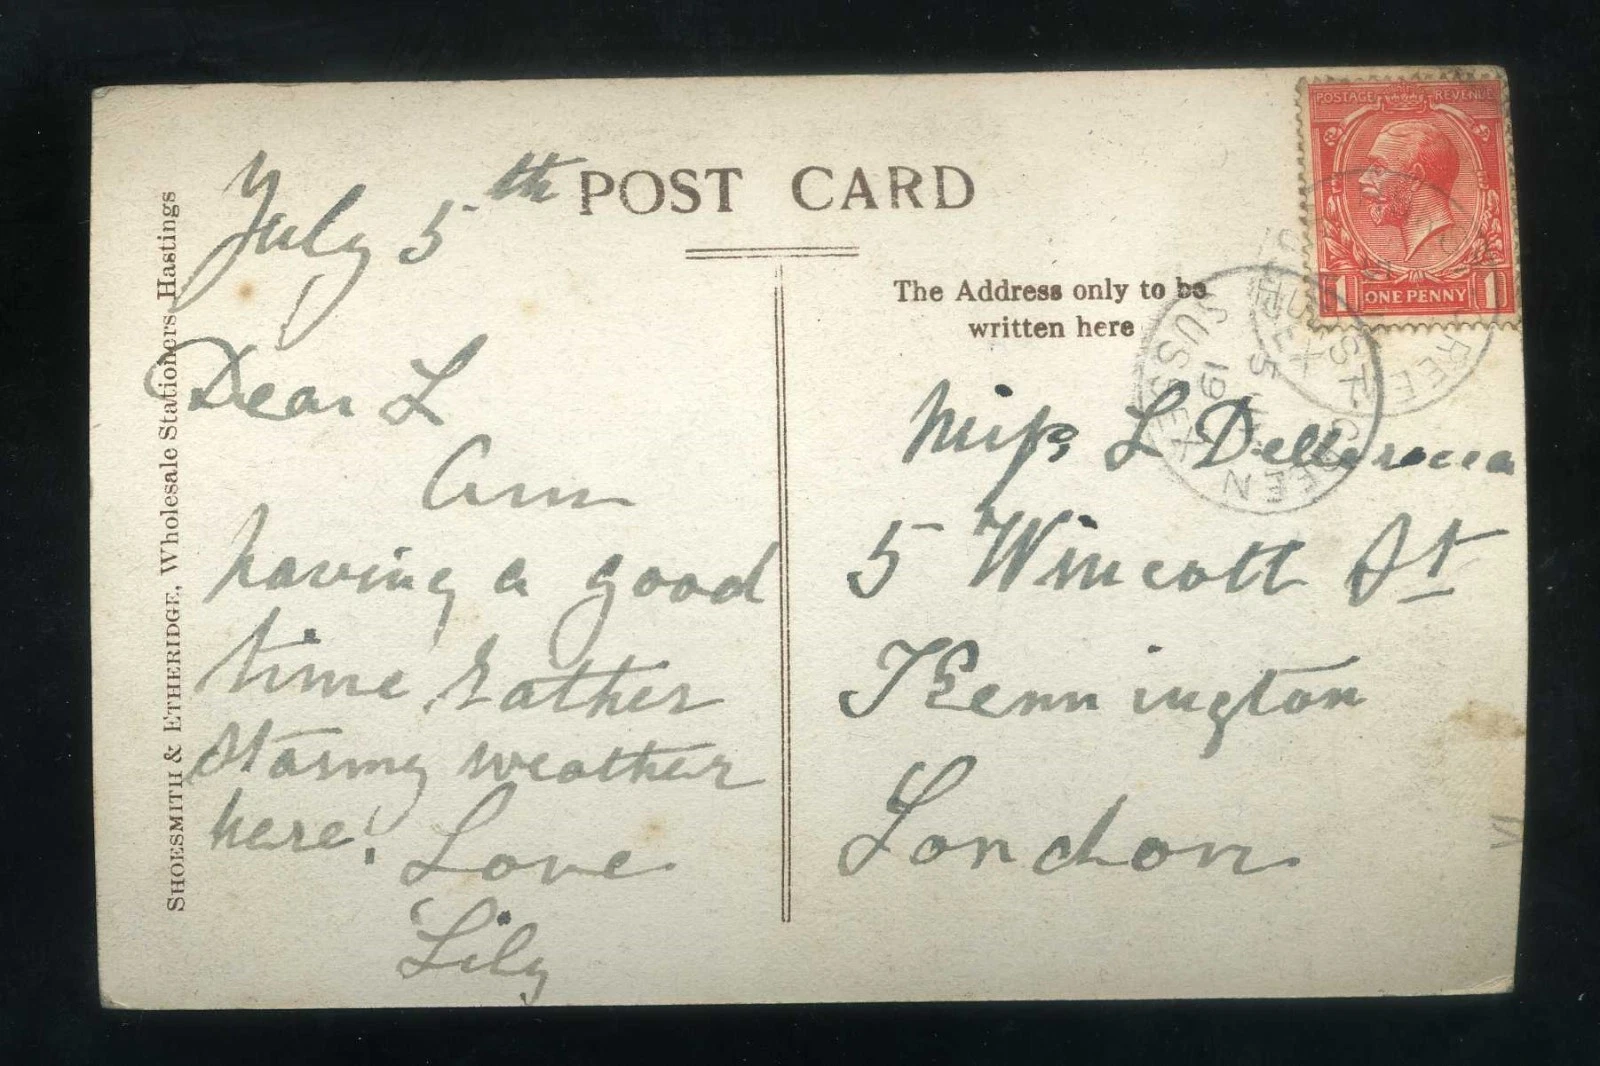 POST CARD
The Address only to be
written here
SHOESMITH & ETHERIDGE, Wholesale Stationers, Hastings
July 5th
Dear L
Am
having a good
time rather
stormy weather
here!
Love
Lily
Miss L
5 Wincott St
Kennington
London
POSTAGE REVENUE
1 ONE PENNY 1
HURST GREEN
SUSSEX
5 JY
19
HURST GREEN
SUSSEX